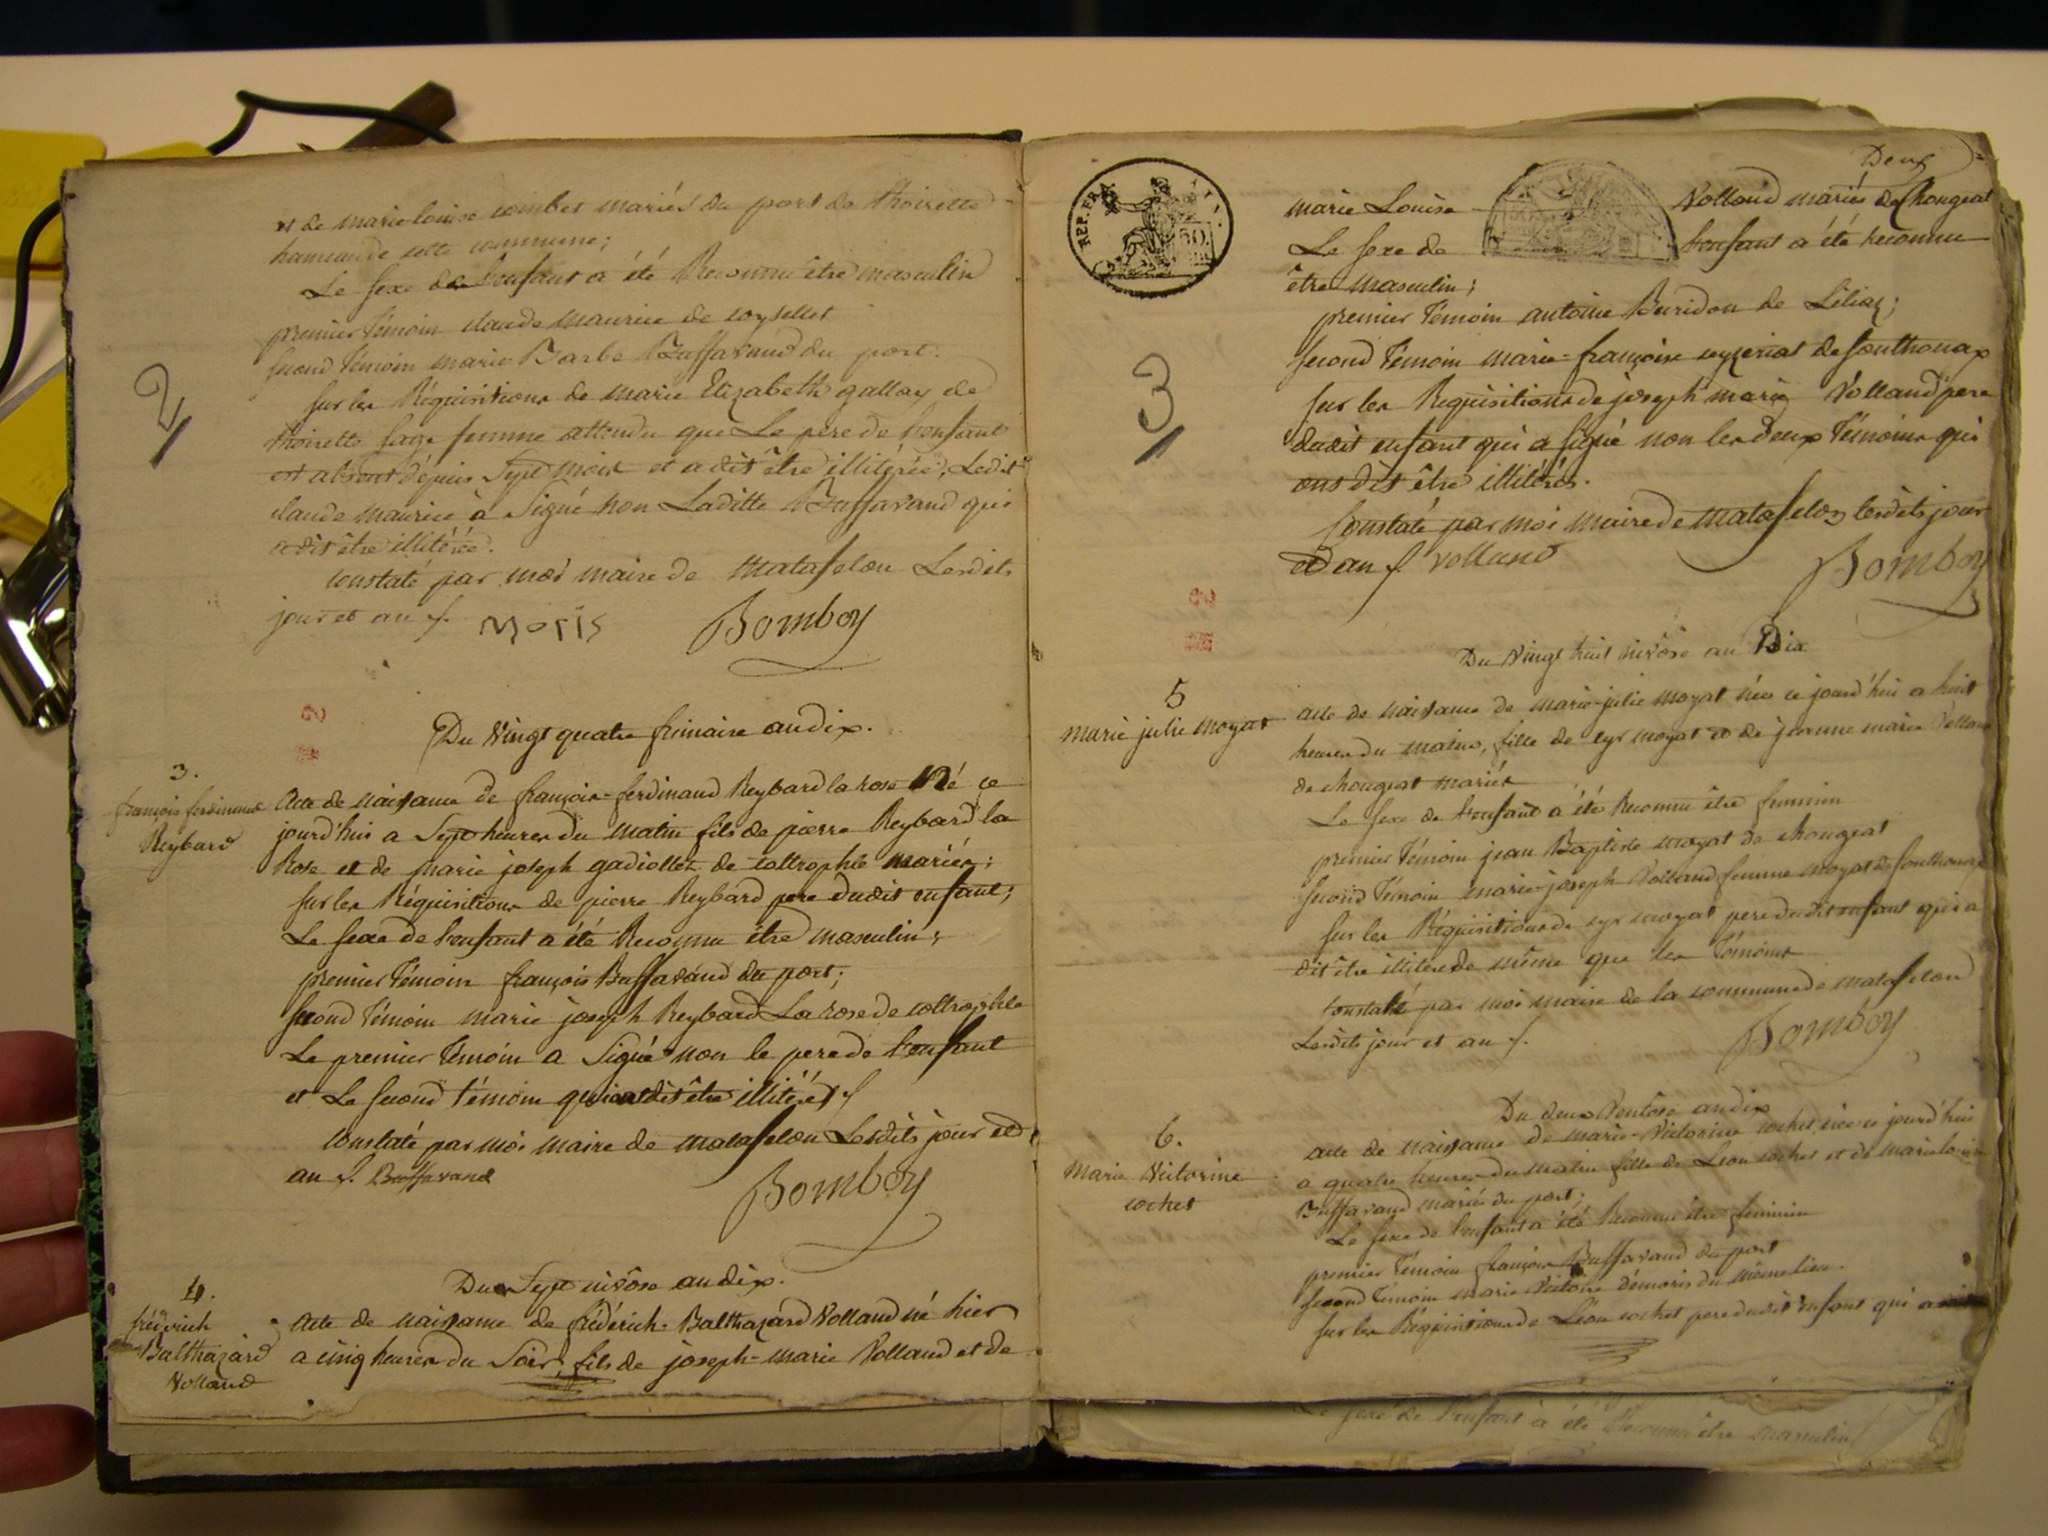 2
et de marie louise combet mariés du port de thoirette
hameau de cette commune;
Le sexe de l'enfant a été Reconnu être masculin
premier témoin claude maurice de coysellet
second témoin marie Barbe Buffavand du port.
sur les Réquisitions de marie Elizabeth gallay de
thoirette sage femme attendu que Le pere de l'enfant
est absent dépuis Sept mois et a dit être illitérée; Ledit
claude maurice à Signé non Laditte Buffavand qui
a dit être illitérée.
constaté par moi maire de Matafelon Lesdits
jour et an ./.
Moris Bomboy
Du Vingt quatre frimaire an dix.
3.
françois ferdinand
Reybard
Acte de naissance de françois-ferdinand Reybard la rose Né ce
jourd'hui a Sept heures du matin fils de pierre Reybard la
Rose et de marie joseph gadiollet de coltrophle mariés;
sur les Réquisitions de pierre Reybard pere dudit enfant;
Le sexe de l'enfant a été Reconnu être masculin;
premier témoin françois Buffavand du port;
second témoin marie joseph Reybard La rose de coltrophle
Le premier témoin a Signé non le pere de l'enfant
et Le second témoin qui ont dit être illitérés ./
constaté par moi maire de matafelon Lesdits jour et
an ./. Buffavand
Bomboy
Du Sept nivôse an dix.
4.
frédérich
Balthazard
Volland
Acte de naissance de frédérich-Balthazard Volland né hier
a cinq heures du Soir, fils de joseph-marie Volland et de
Deux
REP. FRA.
50
3
marie Louise Volland mariés de Chougeat
Le sexe de l'enfant a été reconnu
être masculin;
premier témoin antoine Buridon de Siliat;
second témoin marie-françoise ceyzeriat de sonthonax
sur les Réquisitions de joseph marie Volland pere
dudit enfant qui a signé non les deux témoins qui
ont dit être illitérés.
Constaté par moi maire de matafelon lesdits jour
et an ./. Volland
Bomboy
Du Vingt huit nivôse an Dix
5
marie julie moyat
acte de naissance de marie-julie moyat née ce jourd'hui a huit
heures du matin, fille de cyr moyat et de jeanne marie Volland
de chougeat mariés
Le sexe de l'enfant a été Reconnu être feminin
premier témoin jean Baptiste moyat de chougeat
second témoin marie-joseph Volland femme moyat de sonthonax
sur les Réquisitions de cyr moyat pere dudit enfant qui a
dit être illitéré de même que les témoins
constaté par moi maire de la commune de matafelon
Lesdits jour et an ./.
Bomboy
Du deux Ventôse an dix
6.
Marie Victorine
cochet
acte de naissance de marie-Victorine cochet née ce jourd'hui
a quatre heures du matin fille de Léon cochet et de marie louise
Buffavand mariés du port;
Le sexe de l'enfant a été Reconnu être feminin
premier témoin françois Buffavand du port
second témoin marie Victoire démoris du même lieu.
sur les Réquisitions de Léon cochet pere dudit enfant qui a
Le sexe de l'enfant à été Reconnu être masculin